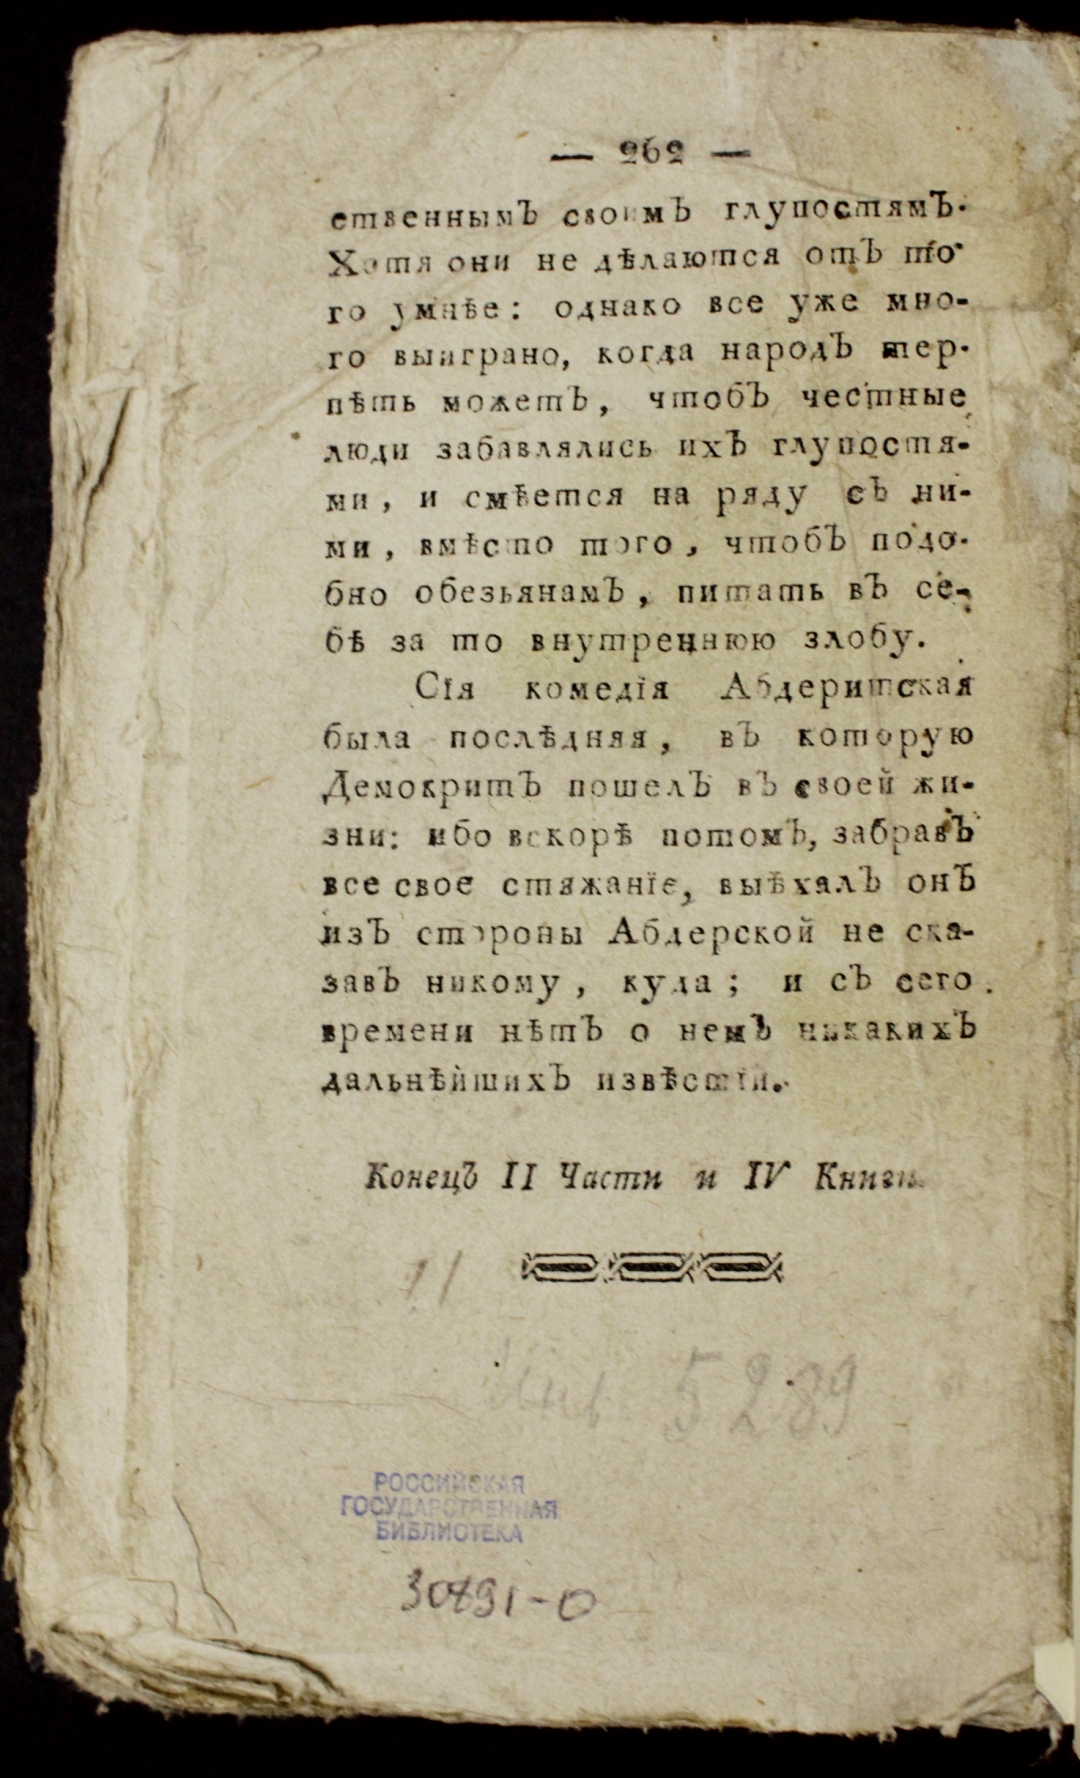 — 262 —
ственнымъ своимъ глупостямъ.
Хотя они не дѣлаются отъ то-
го умнѣе: однако все уже мно-
го выиграно, когда народъ тер-
пѣть можетъ, чтобъ честные
люди забавлялись ихъ глупостя-
ми, и смѣется на ряду съ ни-
ми, вмѣсто того, чтобъ подо-
бно обезьянамъ, питать въ се-
бѣ за то внутреннюю злобу.
Сія комедія Абдеритская
была послѣдняя, въ которую
Демокритъ пошелъ въ своей жи-
зни: ибо вскорѣ потомъ, забравъ
все свое стяжаніе, выѣхалъ онъ
изъ стороны Абдерской не ска-
завъ никому, куда; и съ сего
времени нѣтъ о немъ никакихъ
дальнѣйшихъ извѣстій.
Конецъ II Части и IV Книги.
5289
РОССИЙСКАЯ
ГОСУДАРСТВЕННАЯ
БИБЛИОТЕКА
30791-0